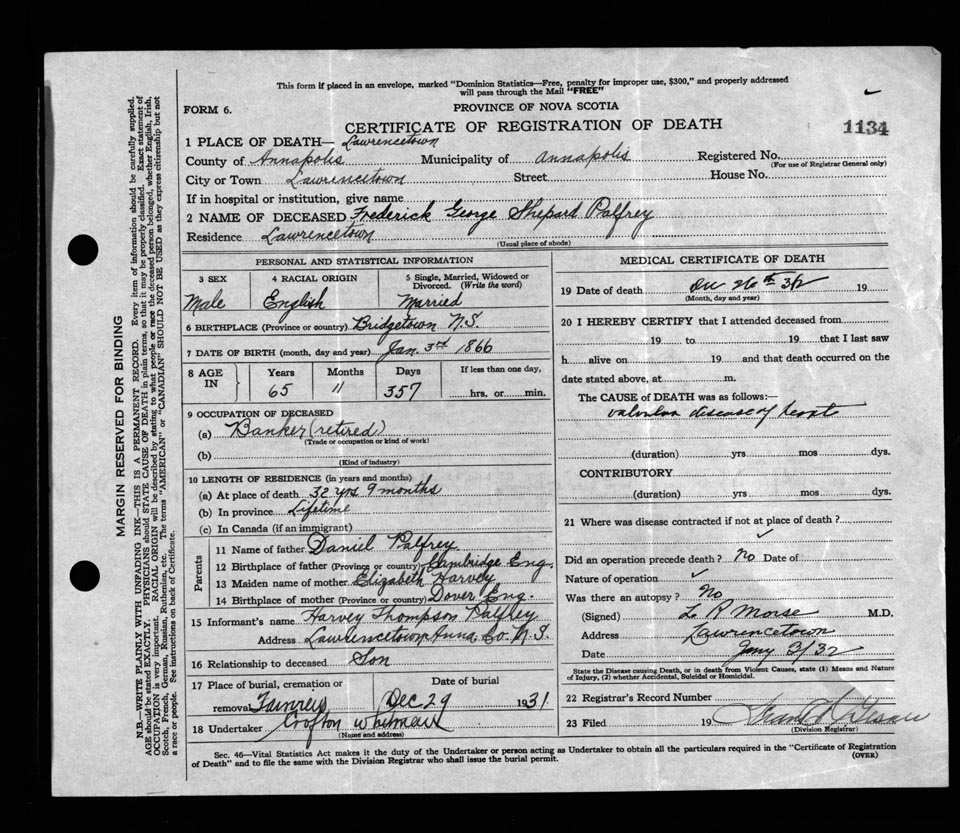 This form if placed in an envelope, marked "Dominion Statistics—Free, penalty for improper use, $300," and properly addressed
will pass through the Mail "FREE"
FORM 6.
PROVINCE OF NOVA SCOTIA
CERTIFICATE OF REGISTRATION OF DEATH
1134
1 PLACE OF DEATH— Lawrencetown
County of Annapolis Municipality of Annapolis Registered No.
(For use of Registrar General only)
City or Town Lawrencetown Street House No.
If in hospital or institution, give name
2 NAME OF DECEASED Frederick George Shepard Palfrey
Residence Lawrencetown
(Usual place of abode)
PERSONAL AND STATISTICAL INFORMATION
3 SEX 4 RACIAL ORIGIN 5 Single, Married, Widowed or
Divorced. (Write the word)
Male English Married
6 BIRTHPLACE (Province or country) Bridgetown N.S.
7 DATE OF BIRTH (month, day and year) Jan. 3rd 1866
8 AGE
IN
Years Months Days If less than one day,
65 11 357 hrs. or min.
9 OCCUPATION OF DECEASED
(a) Banker (retired)
(Trade or occupation or kind of work)
(b)
(Kind of industry)
10 LENGTH OF RESIDENCE (in years and months)
(a) At place of death 32 yrs 9 months
(b) In province Lifetime
(c) In Canada (if an immigrant)
Parents
11 Name of father Daniel Palfrey
12 Birthplace of father (Province or country) Cambridge Eng.
13 Maiden name of mother Elizabeth Harvey
14 Birthplace of mother (Province or country) Dover Eng.
15 Informant's name Harvey Thompson Palfrey
Address Lawrencetown, Anna. Co. N.S.
16 Relationship to deceased Son
17 Place of burial, cremation or Date of burial
removal Dec 29 1931
18 Undertaker Crofton Whitman
(Name and address)
MEDICAL CERTIFICATE OF DEATH
19 Date of death 26th 19
(Month, day and year)
20 I HEREBY CERTIFY that I attended deceased from
19 to 19 that I last saw
h alive on 19 and that death occurred on the
date stated above, at m.
The CAUSE of DEATH was as follows:
valvular disease of heart
(duration) yrs mos dys.
CONTRIBUTORY
(duration) yrs mos dys.
21 Where was disease contracted if not at place of death ?
Did an operation precede death ? No Date of
Nature of operation
Was there an autopsy ? No
(Signed) L R Morse M.D.
Address Lawrencetown
Date Jany 3/32
State the Disease causing Death, or in death from Violent Causes, state (1) Means and Nature
of Injury, (2) whether Accidental, Suicidal or Homicidal.
22 Registrar's Record Number
23 Filed 19
(Division Registrar)
Sec. 46—Vital Statistics Act makes it the duty of the Undertaker or person acting as Undertaker to obtain all the particulars required in the "Certificate of Registration
of Death" and to file the same with the Division Registrar who shall issue the burial permit. (OVER)
MARGIN RESERVED FOR BINDING
N.B.—WRITE PLAINLY WITH UNFADING INK—THIS IS A PERMANENT RECORD. Every item of information should be carefully supplied.
AGE should be stated EXACTLY. PHYSICIANS should STATE CAUSE OF DEATH in plain terms, so that it may be properly classified. Exact statement of
OCCUPATION is very important. RACIAL ORIGIN will be described by stating to what people or race the deceased person belonged, whether English, Irish,
Scotch, French, German, Russian, Ruthenian, etc. The terms "AMERICAN" or "CANADIAN" SHOULD NOT BE USED as they express citizenship but not
a race or people. See instructions on back of Certificate.